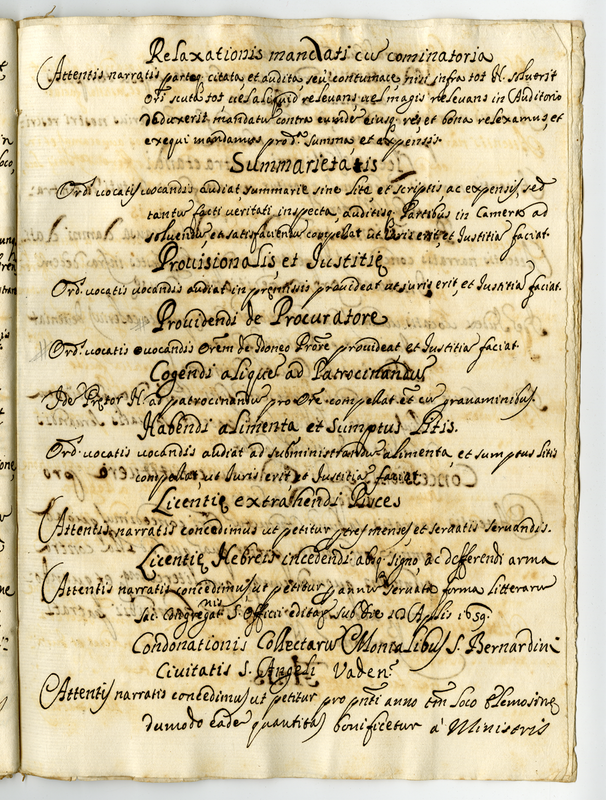 Relaxationis mandati cū cominatoria
Attentis narratis parteq; citata, et audita, seu contumace, nisi infra tot N. solverit
Ori scuta tot vel aliquid relevans, vel magis relevans in Auditorio
deduxerit mandatū contra eundē eiusq; res, et bona relaxamus, et
exequi mandamus pro dª. summa, et expensis.
Summarietatis
Ord. vocatis vocandis audiat summarie sine lite, et scriptis ac expensis, sed
tantū facti veritati inspecta, auditisq; Partibus in Camera ad
solvendū, et satisfaciendū compellat ut Iuris erit, et Iustitiā faciat.
Provisionalis et Iustitię
Ord. vocatis vocandis audiat in premissis provideat ut iuris erit, et Iustitiā faciat.
Providendi de Procuratore
Ord. vocatis vocandis Orem de Idoneo Prōre provideat et Iustitiā faciat
Cogendi aliquē ad Patrocinandū
Idē Pręfat N. ad patrocinandū pro Ore compellat et cū gravaminibus.
Habendi alimenta et sumptus Litis.
Ord. vocatis vocandis audiat ad subministrandū alimenta, et sumptus litis
compellat, ut Iuris erit, et Iustitiā faciat
Licentię extrahendi Pisces
Attentis narratis concedimus ut petitur p tres menses et servatis servandis.
Licentię Hebreis incedendi absq; signo ac defferendi arma
Attentis narratis concedimus ut petitur p annū servata forma litterarū
Sac. Congregatnis S. Officii editaꝝ sub die 12 Aplis 1659.
Condonationis Collectarū Monialibus S. Bernardini
Civitatis S. Angeli Vaden.
Attentis narratis concedimus ut petitur pro pnti anno tm loco elemosinę
dumodo eadē quantitas bonificetur à Ministris